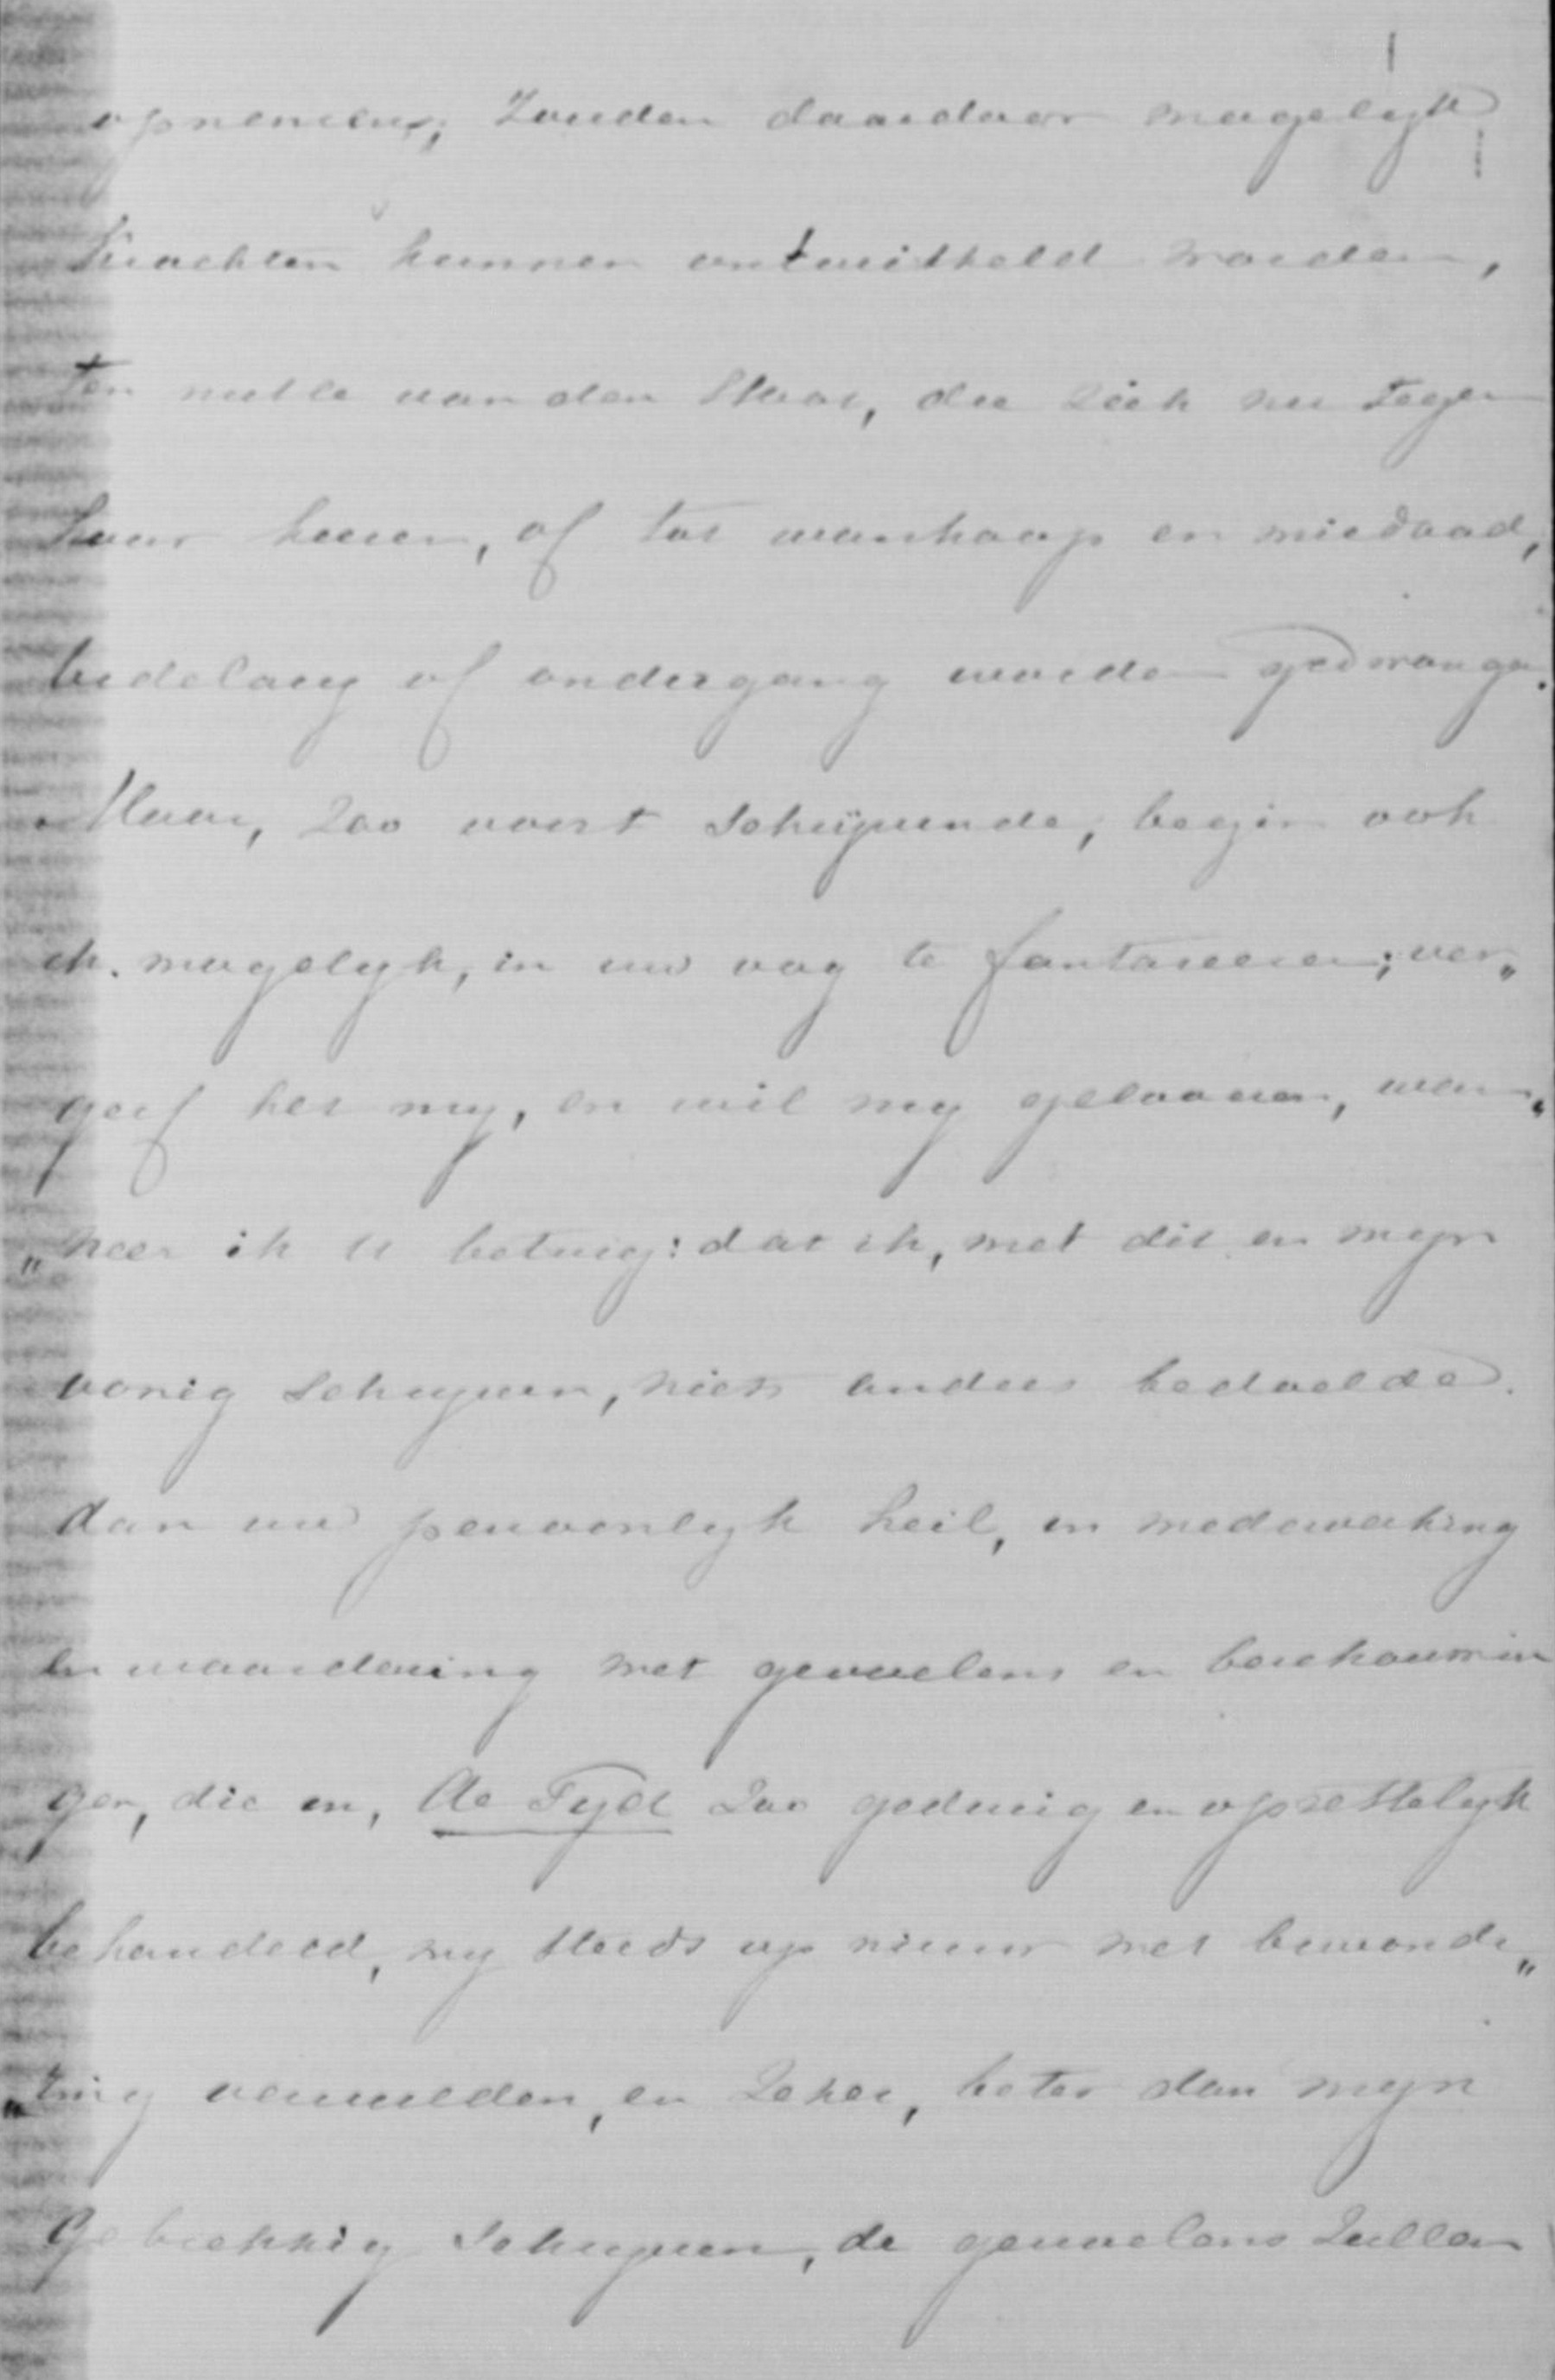 opnemen; zouden daardoor mogelyk
krachten kunnen ontwikkeld worden,
ten nutte van den Staat, die zich nu tegen
haar keeren, of tot wanhoop en misdaad,
bedelary of ondergang worden gedwongen.
Maar, zoo voort schryvende, begin ook
ik mogelyk, in uw oog te fantaseeren; ver„
geef het my, en wil my gelooven, wan„
„neer ik U betuig: dat ik, met dit en myn
vorig schryven, niets anders bedoelde
dan uw persoonlyk heil, en medewerking
en waardeering met gevoelens en beschouwin
gen, die in, De Tyd zoo gedurig en opzettelyk
behandeld, my steeds op nieuw met bewonde„
„ring vervulden, en zeker, beter dan myn
gebrekkig schryven, de gevoelens zullen